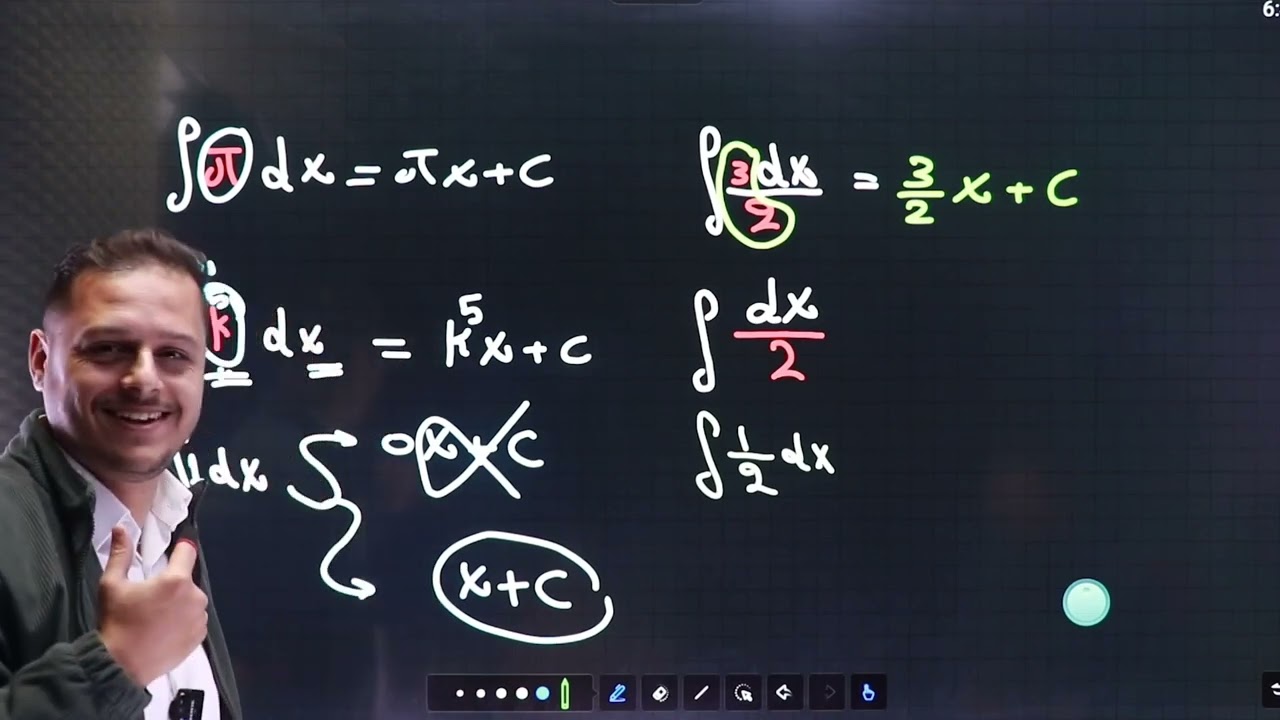 6:
∫ π dx = πx + c
∫ 3dx/2 = 3/2 x + c
k⁵ dx = k⁵x + c
∫ dx/2
dx
0x + c
∫ 1/2 dx
x + c